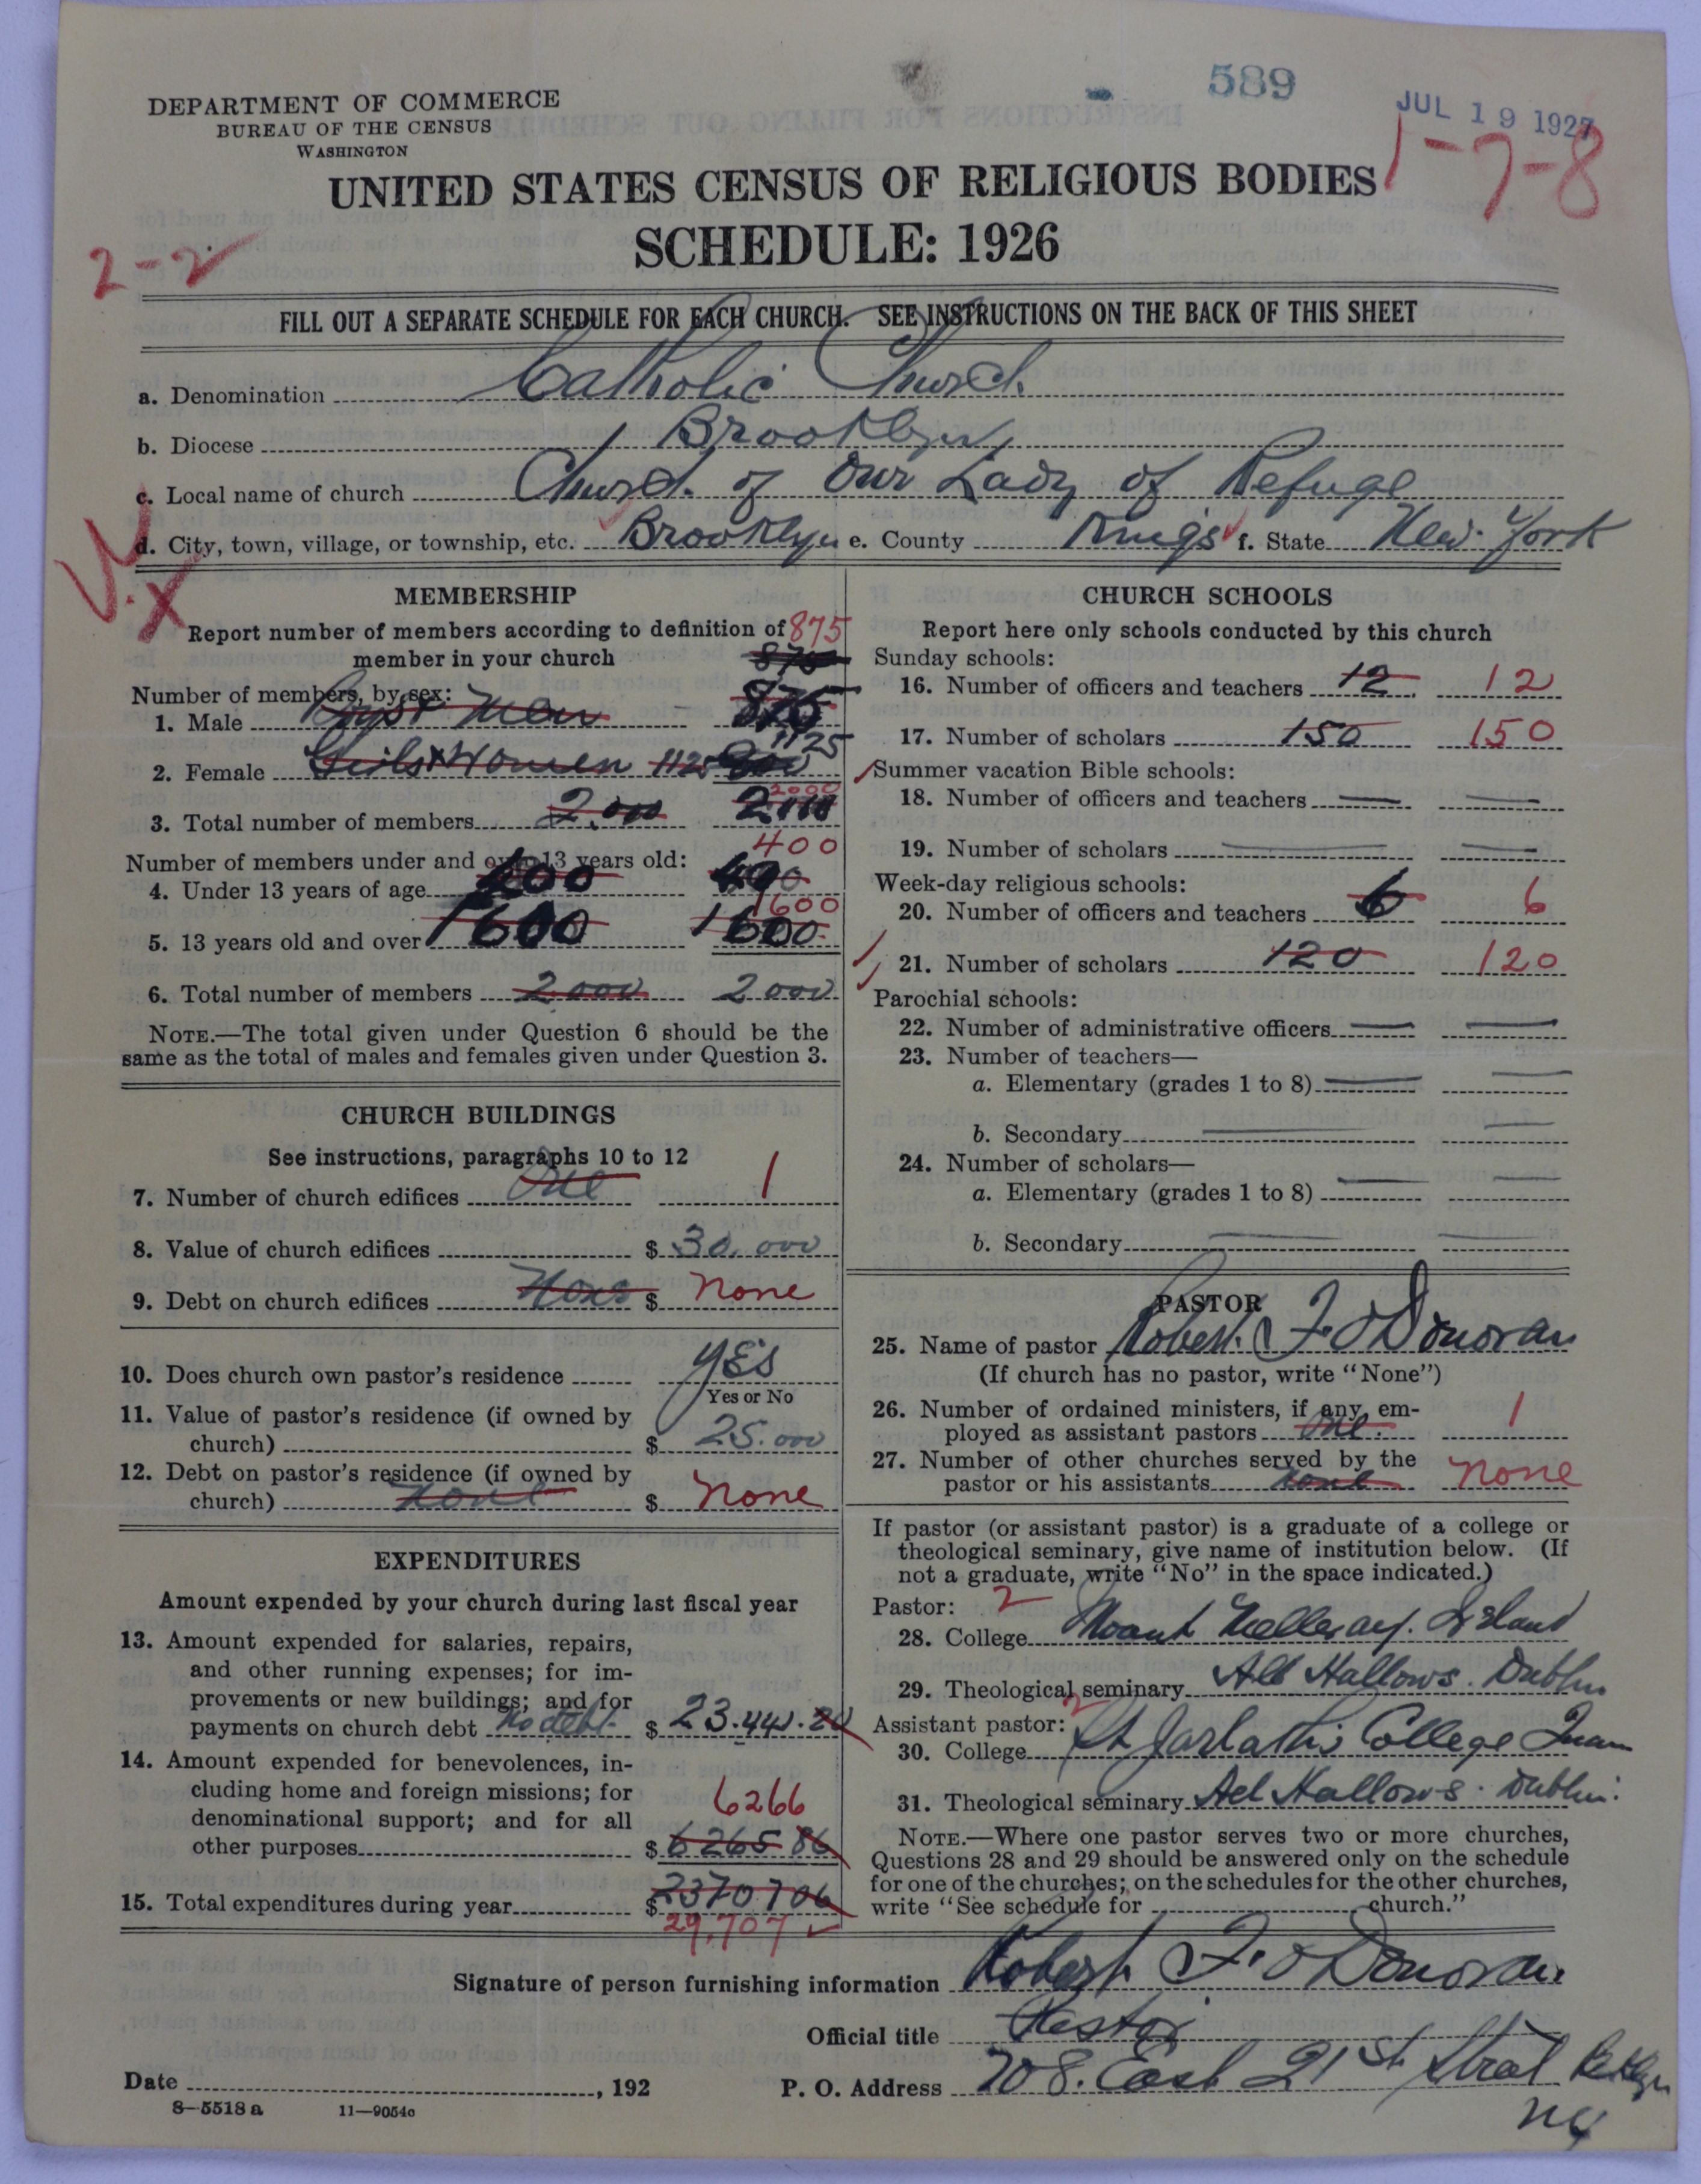 589
JUL 19 1927
DEPARTMENT OF COMMERCE
BUREAU OF THE CENSUS
WASHINGTON
1-7-8
UNITED STATES CENSUS OF RELIGIOUS BODIES
SCHEDULE: 1926
2-2
FILL OUT A SEPARATE SCHEDULE FOR EACH CHURCH. SEE INSTRUCTIONS ON THE BACK OF THIS SHEET
a. Denomination Catholic Church
b. Diocese Brooklyn
c. Local name of church Church of Our Lady of Refuge
d. City, town, village, or township, etc. Brooklyn e. County Kings f. State New York
MEMBERSHIP
Report number of members according to definition of 875
member in your church 875
Number of members, by sex:
1. Male Boys & Men 875
2. Female Girls & Women 1125 1125
2000
3. Total number of members 2,000
400
Number of members under and over 13 years old:
4. Under 13 years of age 400 400
1600
5. 13 years old and over 1600 1600
6. Total number of members 2000 2000
NOTE.—The total given under Question 6 should be the
same as the total of males and females given under Question 3.
CHURCH BUILDINGS
See instructions, paragraphs 10 to 12
7. Number of church edifices One 1
8. Value of church edifices $ 30,000
9. Debt on church edifices None $ None
10. Does church own pastor's residence YES
Yes or No
11. Value of pastor's residence (if owned by
church) $ 25.000
12. Debt on pastor's residence (if owned by
church) none $ None
EXPENDITURES
Amount expended by your church during last fiscal year
13. Amount expended for salaries, repairs,
and other running expenses; for im-
provements or new buildings; and for
payments on church debt No debt $ 23.441.20
14. Amount expended for benevolences, in-
cluding home and foreign missions; for
denominational support; and for all
6266
other purposes $ 6265 86
15. Total expenditures during year $ 2370706
29,707
CHURCH SCHOOLS
Report here only schools conducted by this church
Sunday schools:
16. Number of officers and teachers 12 12
17. Number of scholars 150 150
Summer vacation Bible schools:
18. Number of officers and teachers
19. Number of scholars
Week-day religious schools:
20. Number of officers and teachers 6 6
21. Number of scholars 120 120
Parochial schools:
22. Number of administrative officers
23. Number of teachers—
a. Elementary (grades 1 to 8)
b. Secondary
24. Number of scholars—
a. Elementary (grades 1 to 8)
b. Secondary
PASTOR
25. Name of pastor Robert F. O'Donovan
(If church has no pastor, write "None")
26. Number of ordained ministers, if any, em-
ployed as assistant pastors One. 1
27. Number of other churches served by the
pastor or his assistants none none
If pastor (or assistant pastor) is a graduate of a college or
theological seminary, give name of institution below. (If
not a graduate, write "No" in the space indicated.)
Pastor: 2
28. College Mount Melleray. Ireland
29. Theological seminary All Hallows. Dublin
Assistant pastor: 2
30. College St Jarlath's College Tuam
31. Theological seminary All Hallows. Dublin.
NOTE.—Where one pastor serves two or more churches,
Questions 28 and 29 should be answered only on the schedule
for one of the churches; on the schedules for the other churches,
write "See schedule for church."
Signature of person furnishing information Robert F. O'Donovan
Official title Pastor
Date , 192 P. O. Address 708. East 21st Street Bklyn
NY
8-5518 a 11-9054c